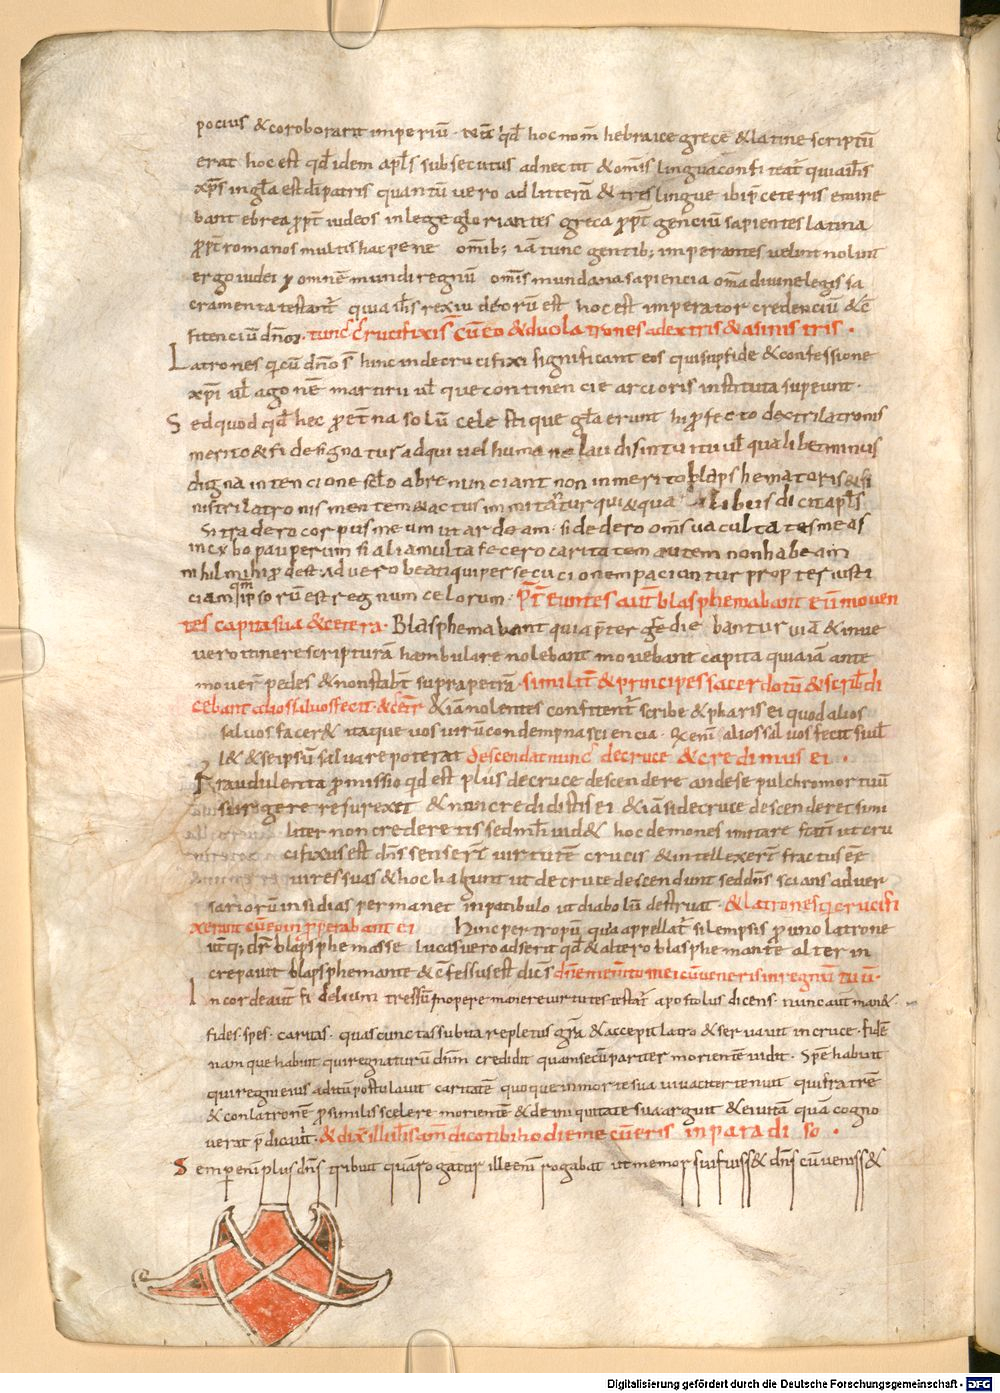 pocius & coroborarit imperiū. Ittū qd hoc nom̄ hebraice grece & latine scriptū
erat hoc est qd idem apls subsecutus adnectit & omīs lingua confiteat quia ihs
xp̄s in gl̄a est di patris quantū vero ad litterā & tres lingue ibi p̄ ceteris emine
bant ebrea ppt iudeos in lege gloriantes greca ppt genciū sapientes latina
ppt romanos multis hac pene omib; iā tunc gentib; imperantes velint nolint
ergo iudei omnē mundi regnū omīs mundana sapiencia oma diuine legis sa
cramenta testant quia ihs rex iudeorū est hoc est imperator credenciū & c̄
fitenciū dn̄or. tunc crucifixi s̄ cū eo & duo latrones a dextris & a sinistris.
Latrones qi cū dn̄o s̄ hinc inde crucifixi significant eos qui sup fide & confessione
xp̄i ul agonē martirii ul que continencie arcioris instituta supeunt.
Sed quod qd hec p etna solū celestique gl̄a erunt hi pfecto dextri latronis
merito & fide signatur ad qui vel humane laudis intuitu ul qualibet minus
digna intencione sclo abrenunciant non inmerito blapshematoris & si
nistri latronis mentem & actus imitatur qui & qua talibus dicit apls
Si tradero corpus meum ut ardeam. si dedero oms facultates meas
in cybo pauperum si alia multa fecero caritatem autem non habeam
nihil mihi pdest. ad vero beati qui persecucionem paciuntur propter iusti
ciam qm̄ ipsorū est regnum celorum. Pt̄euntes aut blasphemabant eū moven
tes capita sua & cetera. Blasphemabant quia p̄ter gredie bantur viā & in ue
vero itinere scripturā hambulare nolebant movebant capita quia iā ante
mover pedes & non stabt supra petrā. similit & principes sacerdotū & scrib di
cebant alios salvos fecit. & cetr & iā nolentes confitent scribe & pharisei quod alios
salvos facer& itaque vos virū condempna sciencia. Q enī alios salvos fecit siul
l& & seipsū salvare poterat descendat nunc de cruce & credimus ei.
Fraudulenta pmissio qd est plus de cruce descendere an de sepulchro mortuū
surgere resurexit & non credidistis ei & iā si de cruce descenderet simi
liter non crederetis sed mhi vid& hoc demones imitare statī ut cru
cifixus est dn̄s senser virtutē crucis & intellexer fractus eē
vires suas & hoc hagunt ut de cruce descendunt sed dn̄s scians adver
sariorū insidias permanet in patibulo ut diabolū destruat. & latrones qi crucifi
xerunt cū eo inp̄perabant ei Hinc per tropū qua appellat silempsis puno latrone
utq; dr̄ blapsphemasse lucas vero adserit qd & altero blasphemante alter in
crepavit blapsphemante & c̄fessus est dic̄s dn̄e memto mei cū veneris in regnū tuū.
In corde aut fidelium tres sum̄ inopere maiere virtutes testat apostolus dicens nunc aut man&.
fides. spes. caritas. quas cunctas subita repletus gr̄a & accepit latro & servavit in cruce. fidē
namque habuit qui regnaturū dn̄m credidit quam secū pariter morientē vidit. Spē habuit
qui regni eius aditū postulavit caritatē quoque in morte sua vivaciter tenuit qui fratrē
& conlatronē p simili scelere morientē & de iniquitate sua arguit & ei vitā quā cogno
verat p̄dicavit. & dix̄ illi ihs am̄ dico tibi hodie mecū eris in paradiso.
Semper enī plus dn̄s tribuit quā rogatur ille enī rogabat ut memor sui fuiss& dn̄s cū veniss&
Digitalisierung gefördert durch die Deutsche Forschungsgemeinschaft - DFG